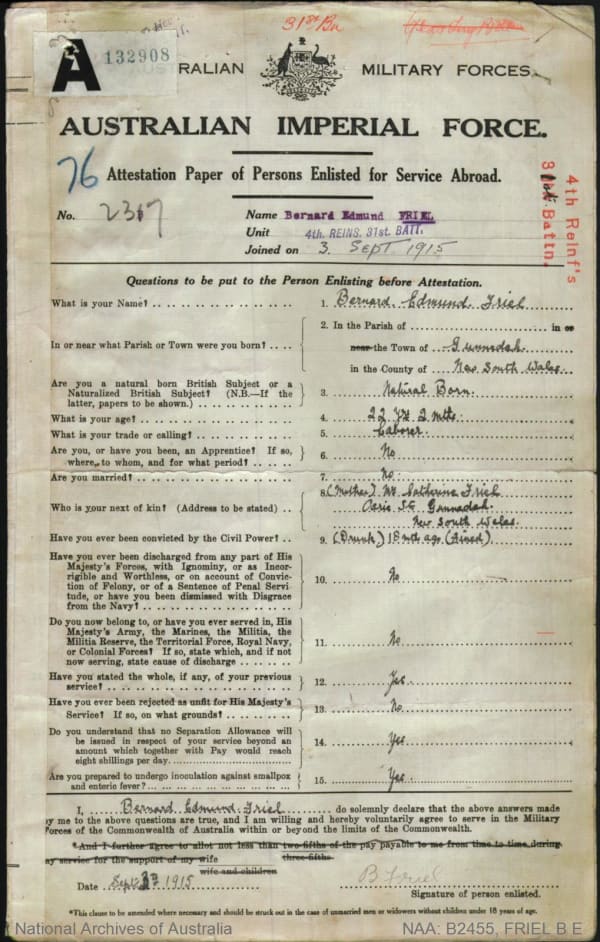 31st Bn
A 132908
RALIAN MILITARY FORCES.
AUSTRALIAN IMPERIAL FORCE.
76 Attestation Paper of Persons Enlisted for Service Abroad.
4th Reinf's
31st. Battn.
No. 2317 Name Bernard Edmund FRIEL
Unit 4th. REINS. 31st. BATT.
Joined on 3 Sept. 1915
Questions to be put to the Person Enlisting before Attestation.
What is your Name? 1. Bernard Edmund Friel
2. In the Parish of in or
In or near what Parish or Town were you born? near the Town of Gunnedah
in the County of New South Wales
Are you a natural born British Subject or a
Naturalized British Subject? (N.B.—If the 3. Natural Born
latter, papers to be shown.)
What is your age? 4. 22 yrs 2 mths
What is your trade or calling? 5. Laborer.
Are you, or have you been, an Apprentice? If so,
where, to whom, and for what period? 6. No
Are you married? 7. No
8. (Mother) Mrs Catherine Friel
Who is your next of kin? (Address to be stated) St Gunnadah
New South Wales.
Have you ever been convicted by the Civil Power? 9. (Drunk) 18 mth ago (Fined)
Have you ever been discharged from any part of His
Majesty's Forces, with Ignominy, or as Incor-
rigible and Worthless, or on account of Convic-
tion of Felony, or of a Sentence of Penal Servi- 10. No
tude, or have you been dismissed with Disgrace
from the Navy?
Do you now belong to, or have you ever served in, His
Majesty's Army, the Marines, the Militia, the
Militia Reserve, the Territorial Force, Royal Navy, 11. No
or Colonial Forces? If so, state which, and if not
now serving, state cause of discharge
Have you stated the whole, if any, of your previous
service? 12. Yes
Have you ever been rejected as unfit for His Majesty's
Service? If so, on what grounds? 13. No
Do you understand that no Separation Allowance will
be issued in respect of your service beyond an
amount which together with Pay would reach 14. Yes
eight shillings per day.
Are you prepared to undergo inoculation against smallpox
and enteric fever? 15. Yes
I, Bernard Edmund Friel do solemnly declare that the above answers made
by me to the above questions are true, and I am willing and hereby voluntarily agree to serve in the Military
Forces of the Commonwealth of Australia within or beyond the limits of the Commonwealth.
*And I further agree to allot not less than two-fifths of the pay payable to me from time to time during
three-fifths
my service for the support of my wife
wife and children
Date Sept 1915 B Friel
Signature of person enlisted.
*This clause to be amended where necessary and should be struck out in the case of unmarried men or widowers without children under 18 years of age.
National Archives of Australia NAA: B2455, FRIEL B E